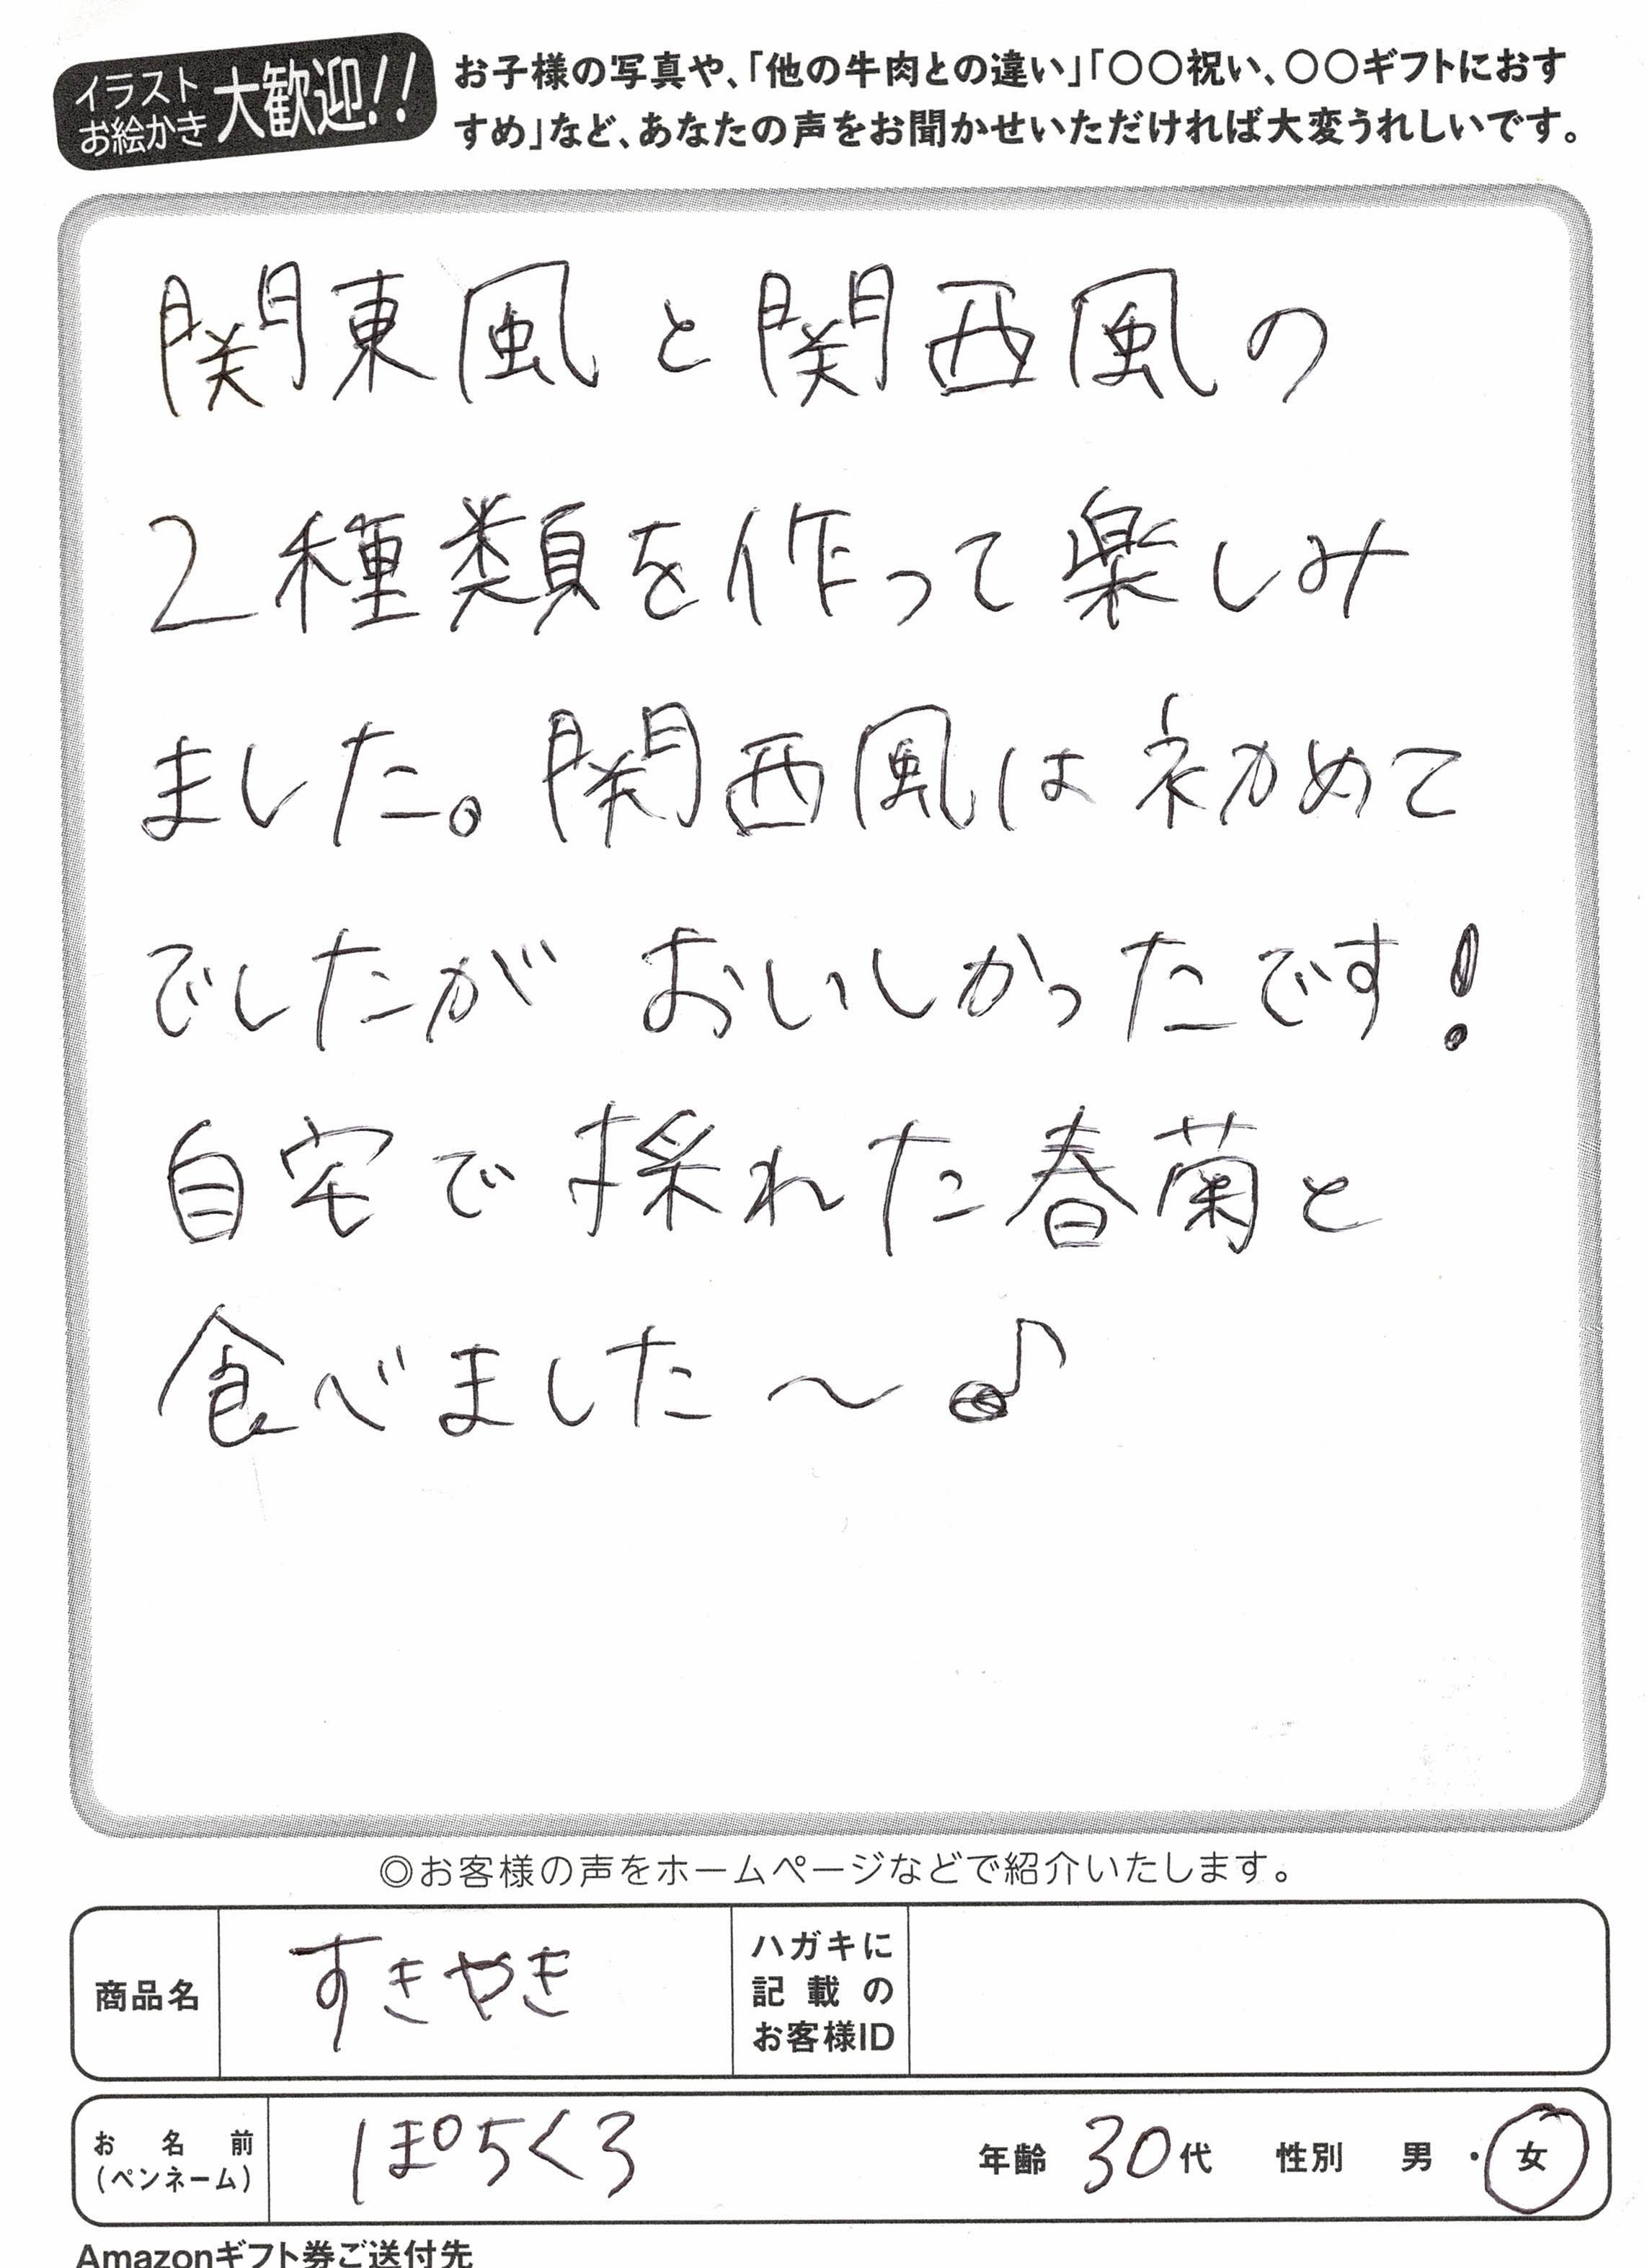 イラスト
お絵かき
大歓迎!!
お子様の写真や、「他の牛肉との違い」「〇〇祝い、〇〇ギフトにおす
すめ」など、あなたの声をお聞かせいただければ大変うれしいです。
関東風と関西風の
2種類を作って楽しみ
ました。関西風は初めて
でしたが おいしかったです!
自宅で採れた春菊と
食べました～♪
◎お客様の声をホームページなどで紹介いたします。
商品名 すきやき
ハガキに
記載の
お客様ID
お名前
(ペンネーム)
ぽちくろ 年齢 30代 性別 男・女
Amazonギフト券ご送付先